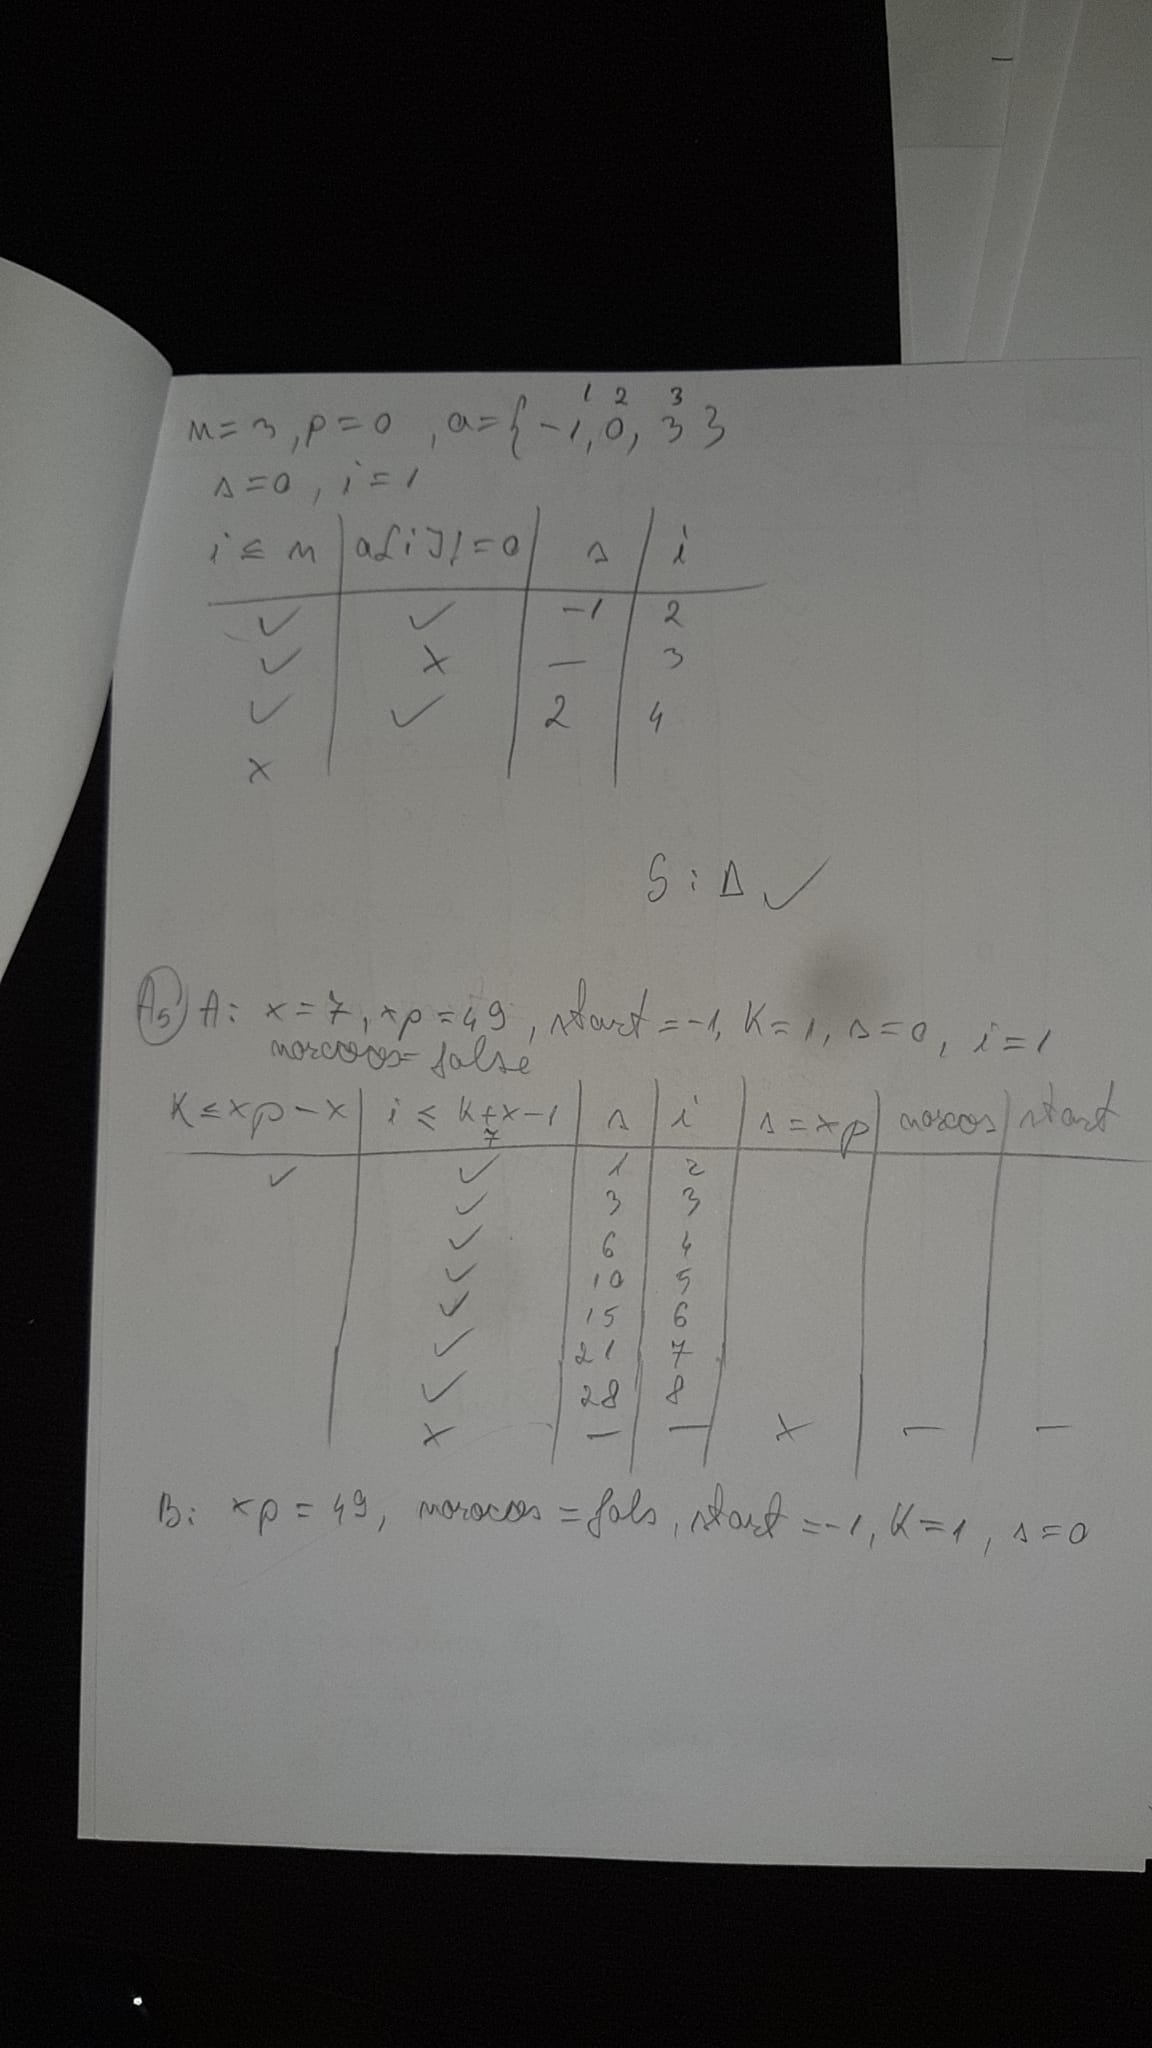 1 2 3
n=3, p=0, a={-1, 0, 3}
s=0, i=1
i ≤ n | a[i]!=0 | s | i
✓ ✓ -1 2
✓ x — 3
✓ ✓ 2 4
x
S: Δ ✓
A5 A: x=7, xp=49, start=-1, K=1, s=0, i=1
norocos=false
K≤xp-x | i ≤ k+x-1 | s | i | s=xp | norocos | start
7
✓ ✓ 1 2
✓ 3 3
✓ 6 4
✓ 10 5
✓ 15 6
✓ 21 7
✓ 28 8
x — — x — —
B: xp=49, norocos=fals, start=-1, K=1, s=0